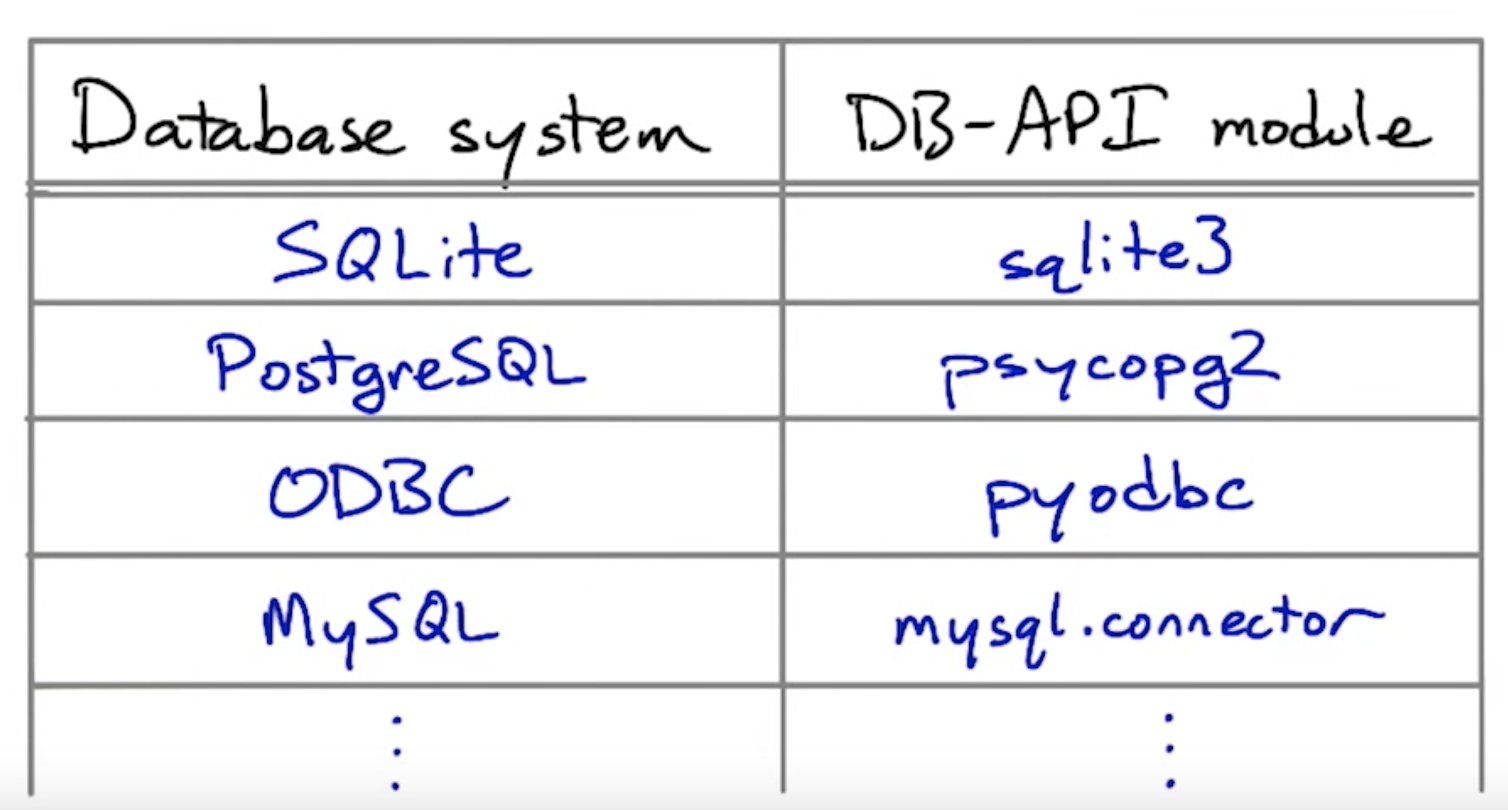 Database system DB-API module
SQLite sqlite3
PostgreSQL psycopg2
ODBC pyodbc
MySQL mysql.connector
⋮ ⋮